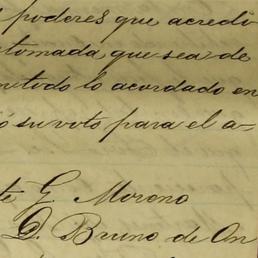 poderes que acredi
tomada que sea de
todo lo acordado en
su voto para el a-
te G. Moreno
D. Bruno de On